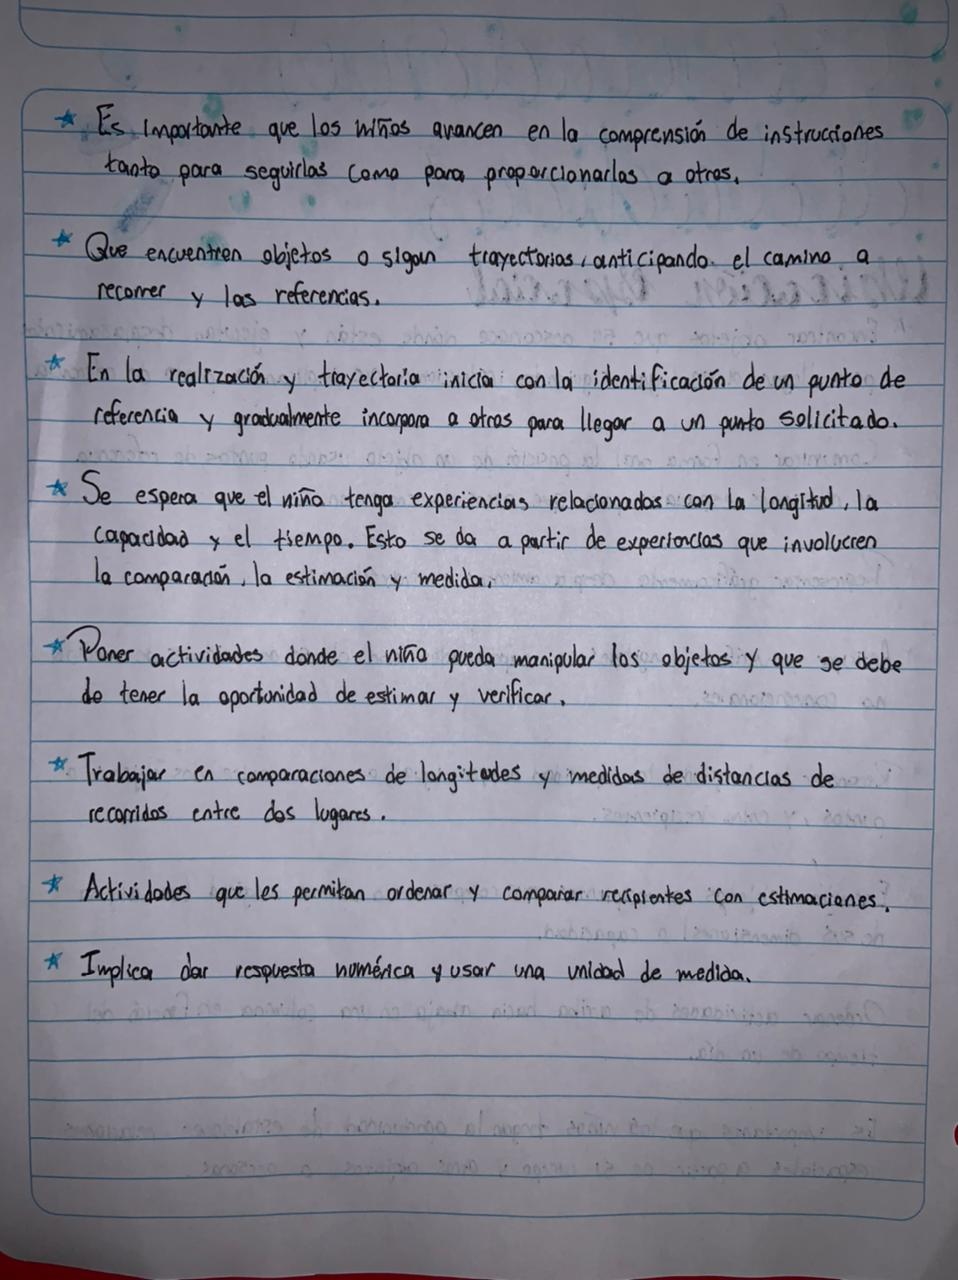 ★ Es importante que los niños avancen en la comprensión de instrucciones
tanto para seguirlas como para proporcionarlas a otros.
★ Que encuentren objetos o sigan trayectorias, anticipando el camino a
recorrer y las referencias.
★ En la realización y trayectoria inicia con la identificación de un punto de
referencia y gradualmente incorpora a otros para llegar a un punto solicitado.
★ Se espera que el niño tenga experiencias relacionados con la longitud, la
capacidad y el tiempo. Esto se da a partir de experiencias que involucren
la comparación, la estimación y medida.
★ Poner actividades donde el niño pueda manipular los objetos y que se debe
de tener la oportunidad de estimar y verificar.
★ Trabajar en comparaciones de longitudes y medidas de distancias de
recorridos entre dos lugares.
★ Actividades que les permitan ordenar y comparar recipientes con estimaciones.
★ Implica dar respuesta numérica y usar una unidad de medida.